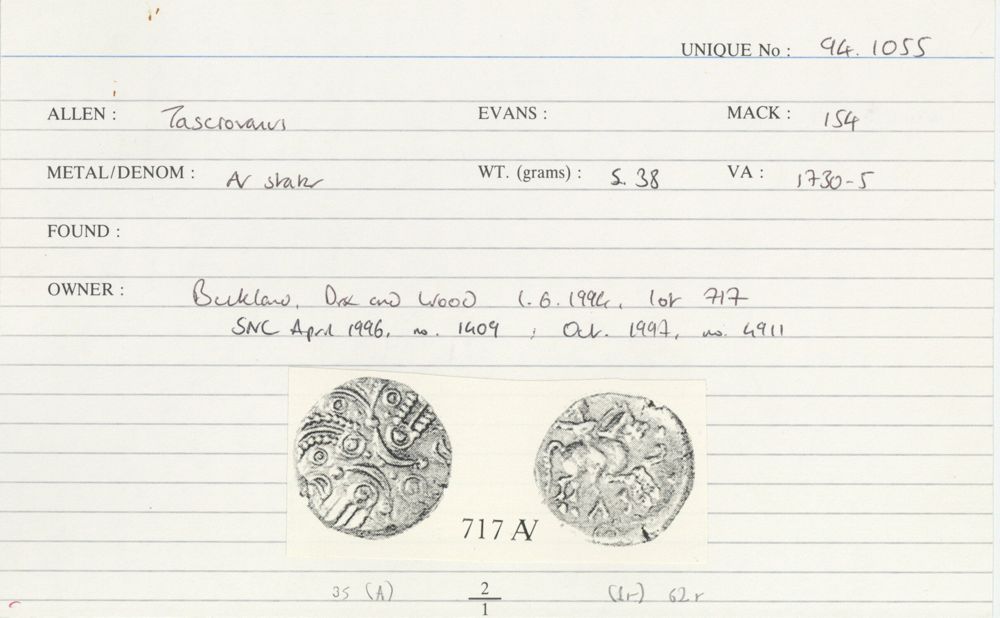 UNIQUE No : 94.1055
ALLEN : Tasciovanus EVANS : MACK : 154
METAL/DENOM : AV stater WT. (grams) : 5.38 VA : 1730-5
FOUND :
OWNER : Buckland, Dix and Wood 1.6.1994, lot 717
SNC April 1996, no. 1409 ; Oct. 1997, no. 4911
717 AV
35 (A) 2 (1r) 62r
1